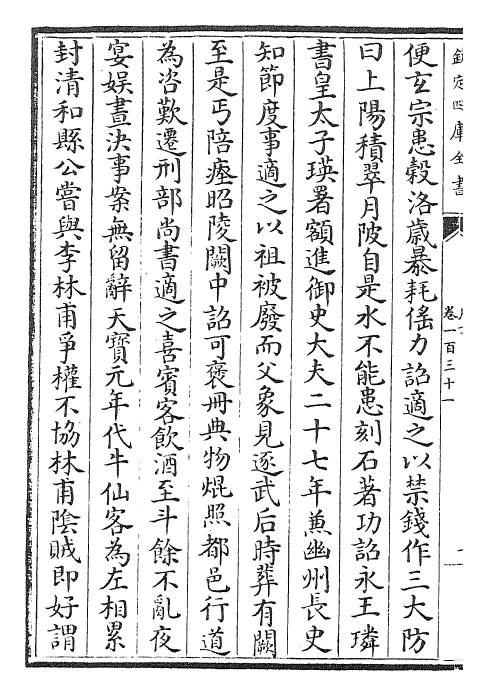 欽定四庫全書
卷一百三十一
便玄宗患穀洛歲暴耗徭力詔適之以禁錢作三大防
曰上陽積翠月陂自是水不能患刻石著功詔永王璘
書皇太子瑛署額進御史大夫二十七年兼幽州長史
知節度事適之以祖被廢而父象見逐武后時葬有闕
至是丐陪瘞昭陵闕中詔可褒冊典物焜照都邑行道
為咨歎遷刑部尚書適之喜賓客飲酒至斗餘不亂夜
宴娛晝決事案無留辭天寶元年代牛仙客為左相累
封清和縣公嘗與李林甫爭權不協林甫陰賊即好謂